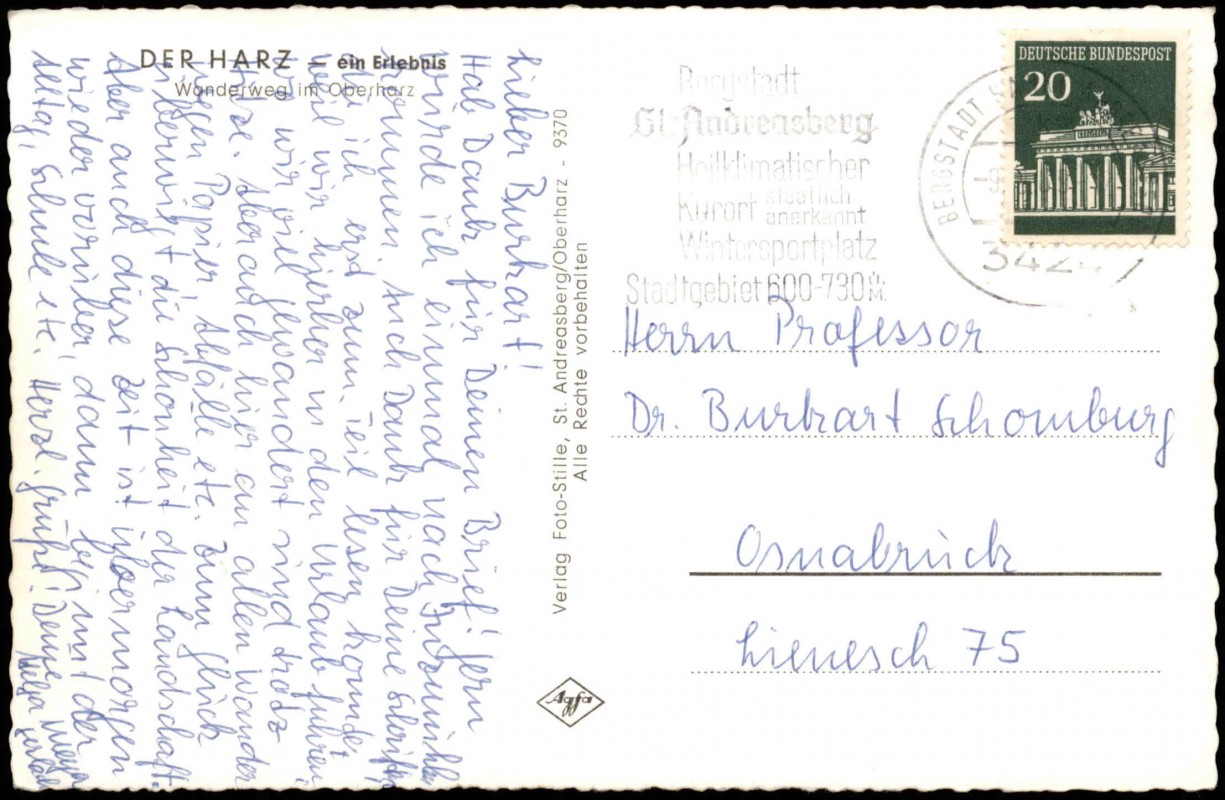 DER HARZ – ein Erlebnis
Wanderweg im Oberharz
Lieber Burkhart!
Hab Dank für Deinen Brief! Gern
würde ich einmal nach
kommen. Auch Dank für Deine Schriften,
die ich erst zum Teil lesen konnte,
weil wir hierher in den Urlaub fuhren,
wo wir viel gewandert sind trotz
Hitze. Aber auch hier an allen Wander
wegen Papier, Abfälle etc. Zum Glück
überwiegt die Schönheit der Landschaft.
Aber auch diese Zeit ist übermorgen
wieder vorüber, dann beginnt der
Alltag, Schule etc. Herzl. Grüße! Deine
Helga Meyer
Verlag Foto-Stille, St. Andreasberg/Oberharz - 9370
Alle Rechte vorbehalten
Agfa
Bergstadt
St. Andreasberg
Heilklimatischer
Kurort staatlich anerkannt
Wintersportplatz
Stadtgebiet 600-730 ü. M.
BERGSTADT S
3424
DEUTSCHE BUNDESPOST
20
Herrn Professor
Dr. Burkhart Schomburg
Osnabrück
Lienesch 75